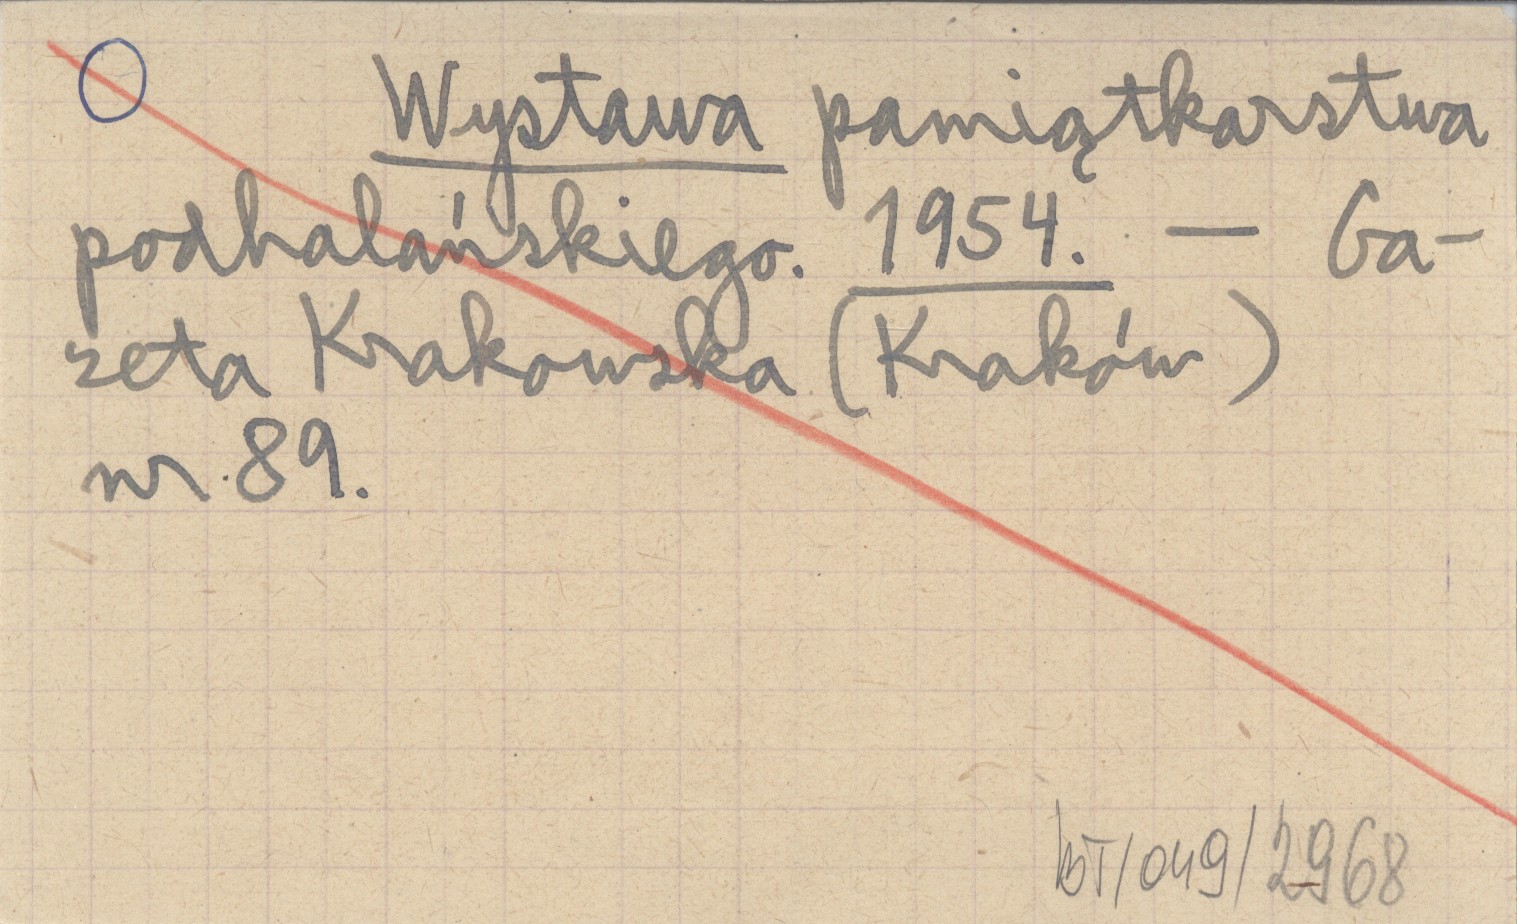 Wystawa pamiątkarstwa
podhalańskiego. 1954. — Ga-
zeta Krakowska (Kraków)
nr. 89.
BT/049/2968